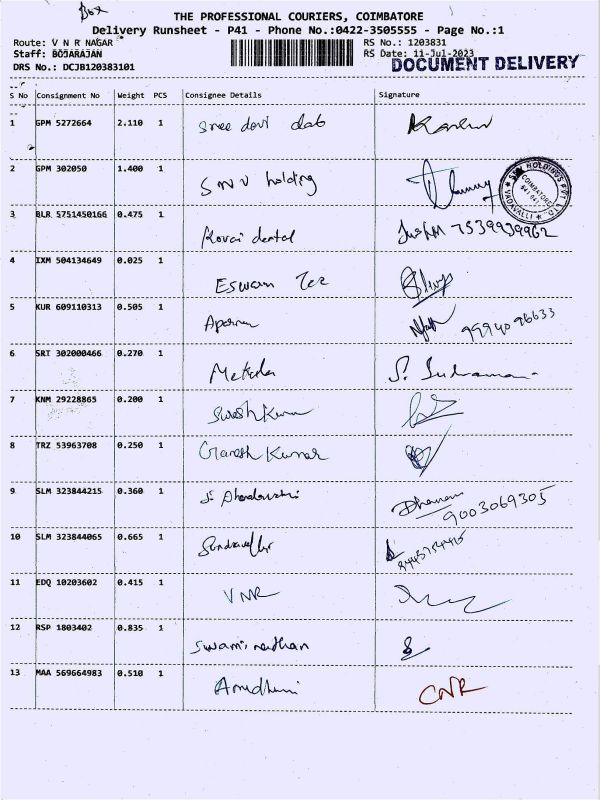 Box
THE PROFESSIONAL COURIERS, COIMBATORE
Delivery Runsheet - P41 - Phone No.:0422-3505555 - Page No.:1
Route: V N R NAGAR RS No.: 1203831
Staff: BOJARAJAN RS Date: 11-Jul-2023
DRS No.: DCJB120383101 DOCUMENT DELIVERY
S No Consignment No Weight PCS Consignee Details Signature
1 GPM 5272664 2.110 1 Sree devi lab
2 GPM 302050 1.400 1 SNV holding
SNV HOLDINGS PVT LTD COIMBATORE 641 041 VADAVALLI
3 BLR 5751450166 0.475 1 Kovai dental 7539939962
4 IXM 504134649 0.025 1 Eswari Tex
5 KUR 609110313 0.505 1 9994096633
6 SRT 302000466 0.270 1
7 KNM 29228865 0.200 1 Sureshkumar
8 TRZ 53963708 0.250 1 Ganesh Kumar
9 SLM 323844215 0.360 1 Dhanam
9003069305
10 SLM 323844065 0.665 1
11 EDQ 10203602 0.415 1 VNR
12 RSP 1803402 0.835 1 Swaminathan
13 MAA 569664983 0.510 1 CNR